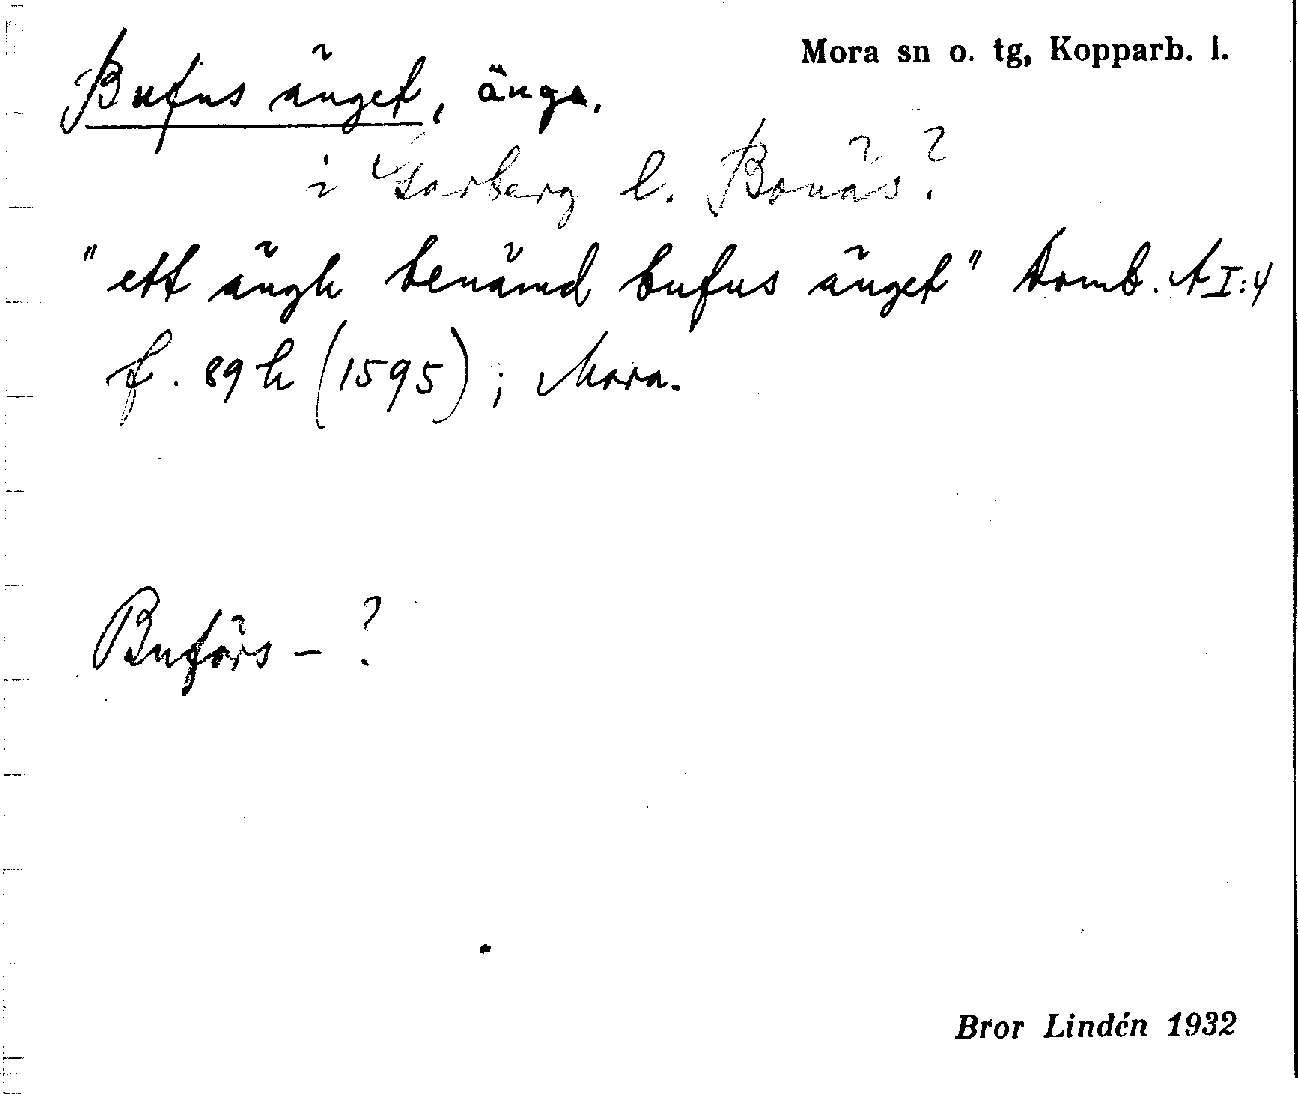 Mora sn o. tg, Kopparb. l.
Bufus änget, ängs.
i Garberg l. Bonäs?
"ett ängh benämd bufus änget" Domb. A I:4
f. 89 h (1595); Mora.
Buförs - ?
Bror Lindén 1932